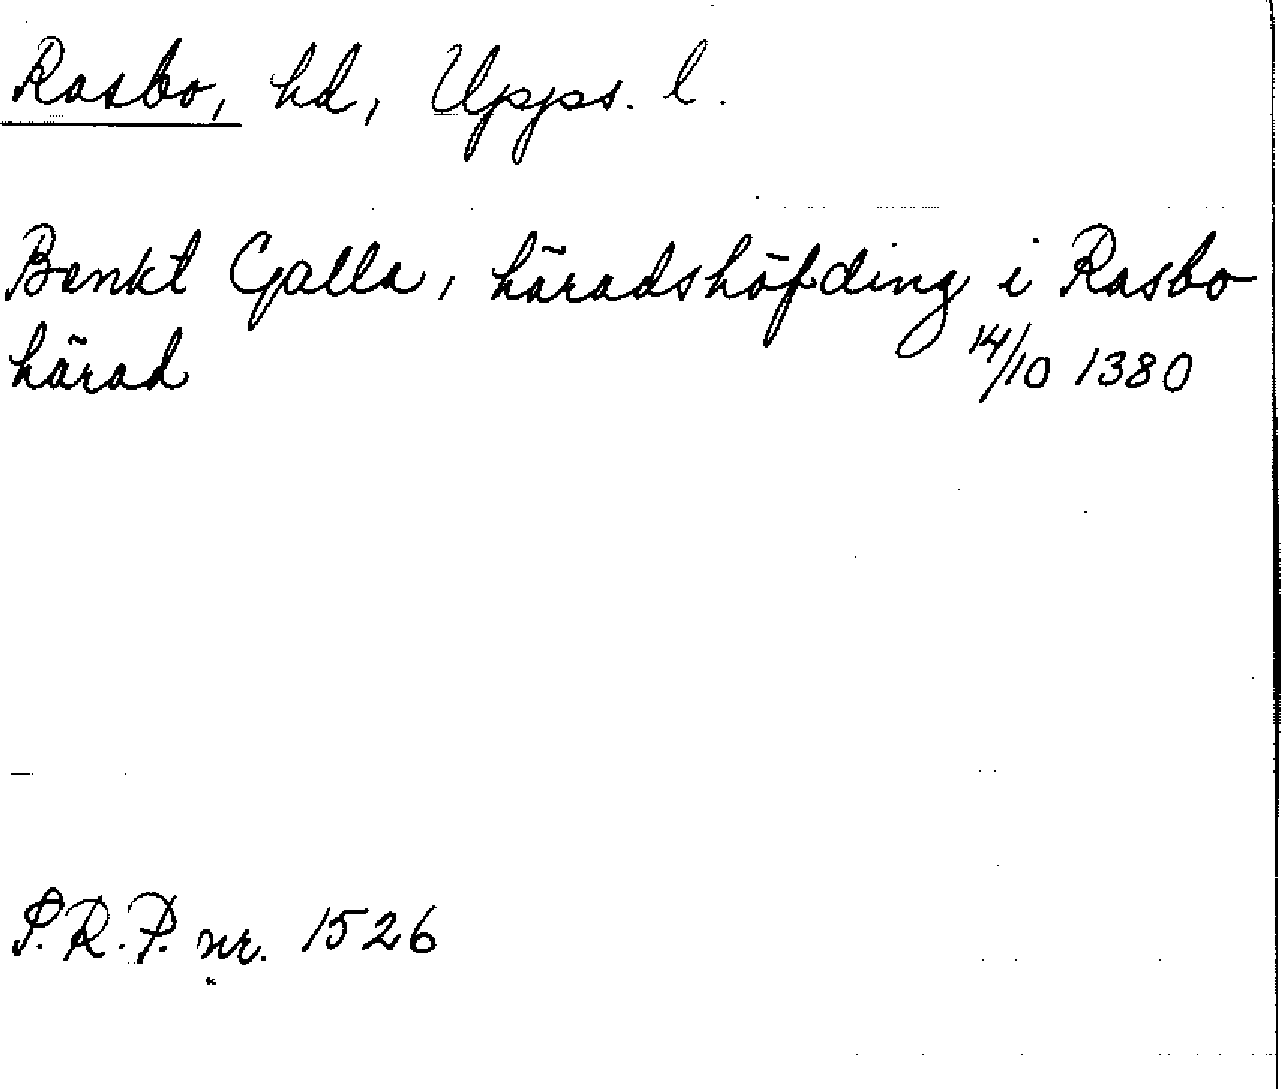 Rasbo, hd, Upps. l.
Benkt Galla, häradshöfding i Rasbo
härad 14/10 1380
S.R.P. nr. 1526